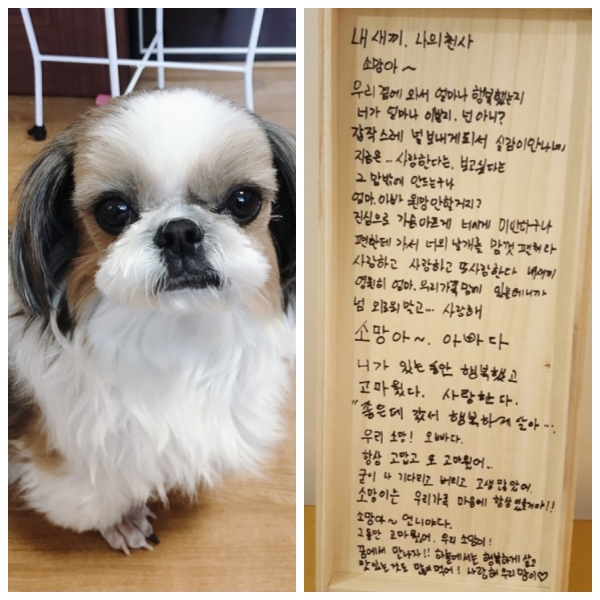 내 새끼. 나의 천사
소망아~
우리 곁에 와서 얼마나 행복했는지
너가 얼마나 이쁜지. 넌 아니?
갑작스레 널 보내게 되서 실감이 안나네
지금은... 사랑한다는, 보고싶다는
그 말밖에 안되는구나
엄마, 아빠 원망 안할거지?
진심으로 가슴아프게 너에게 미안하구나
편한데 가서 너의 날개를 맘껏 펼쳐라
사랑하고 사랑하고 또 사랑한다 내새끼
영원히 엄마. 우리가족 맘에 있을테니까
넘 외로워 말고... 사랑해
소망아~. 아빠다
니가 있는동안 행복했고
고마웠다. 사랑한다.
"좋은데 갔서 행복하게 살아...
우리 소망! 오빠다.
항상 고맙고 또 고마웠어..
굳이 나 기다리고 버티고 고생 많았어
소망이는 우리가족 마음에 항상 있을거야!!
소망아~ 언니야다.
그동안 고마웠어. 우리 소망이!
꿈에서 만나자!! 하늘에서는 행복하게 살고
맛있는 것도 많이 먹어! 사랑해 우리 망이♡